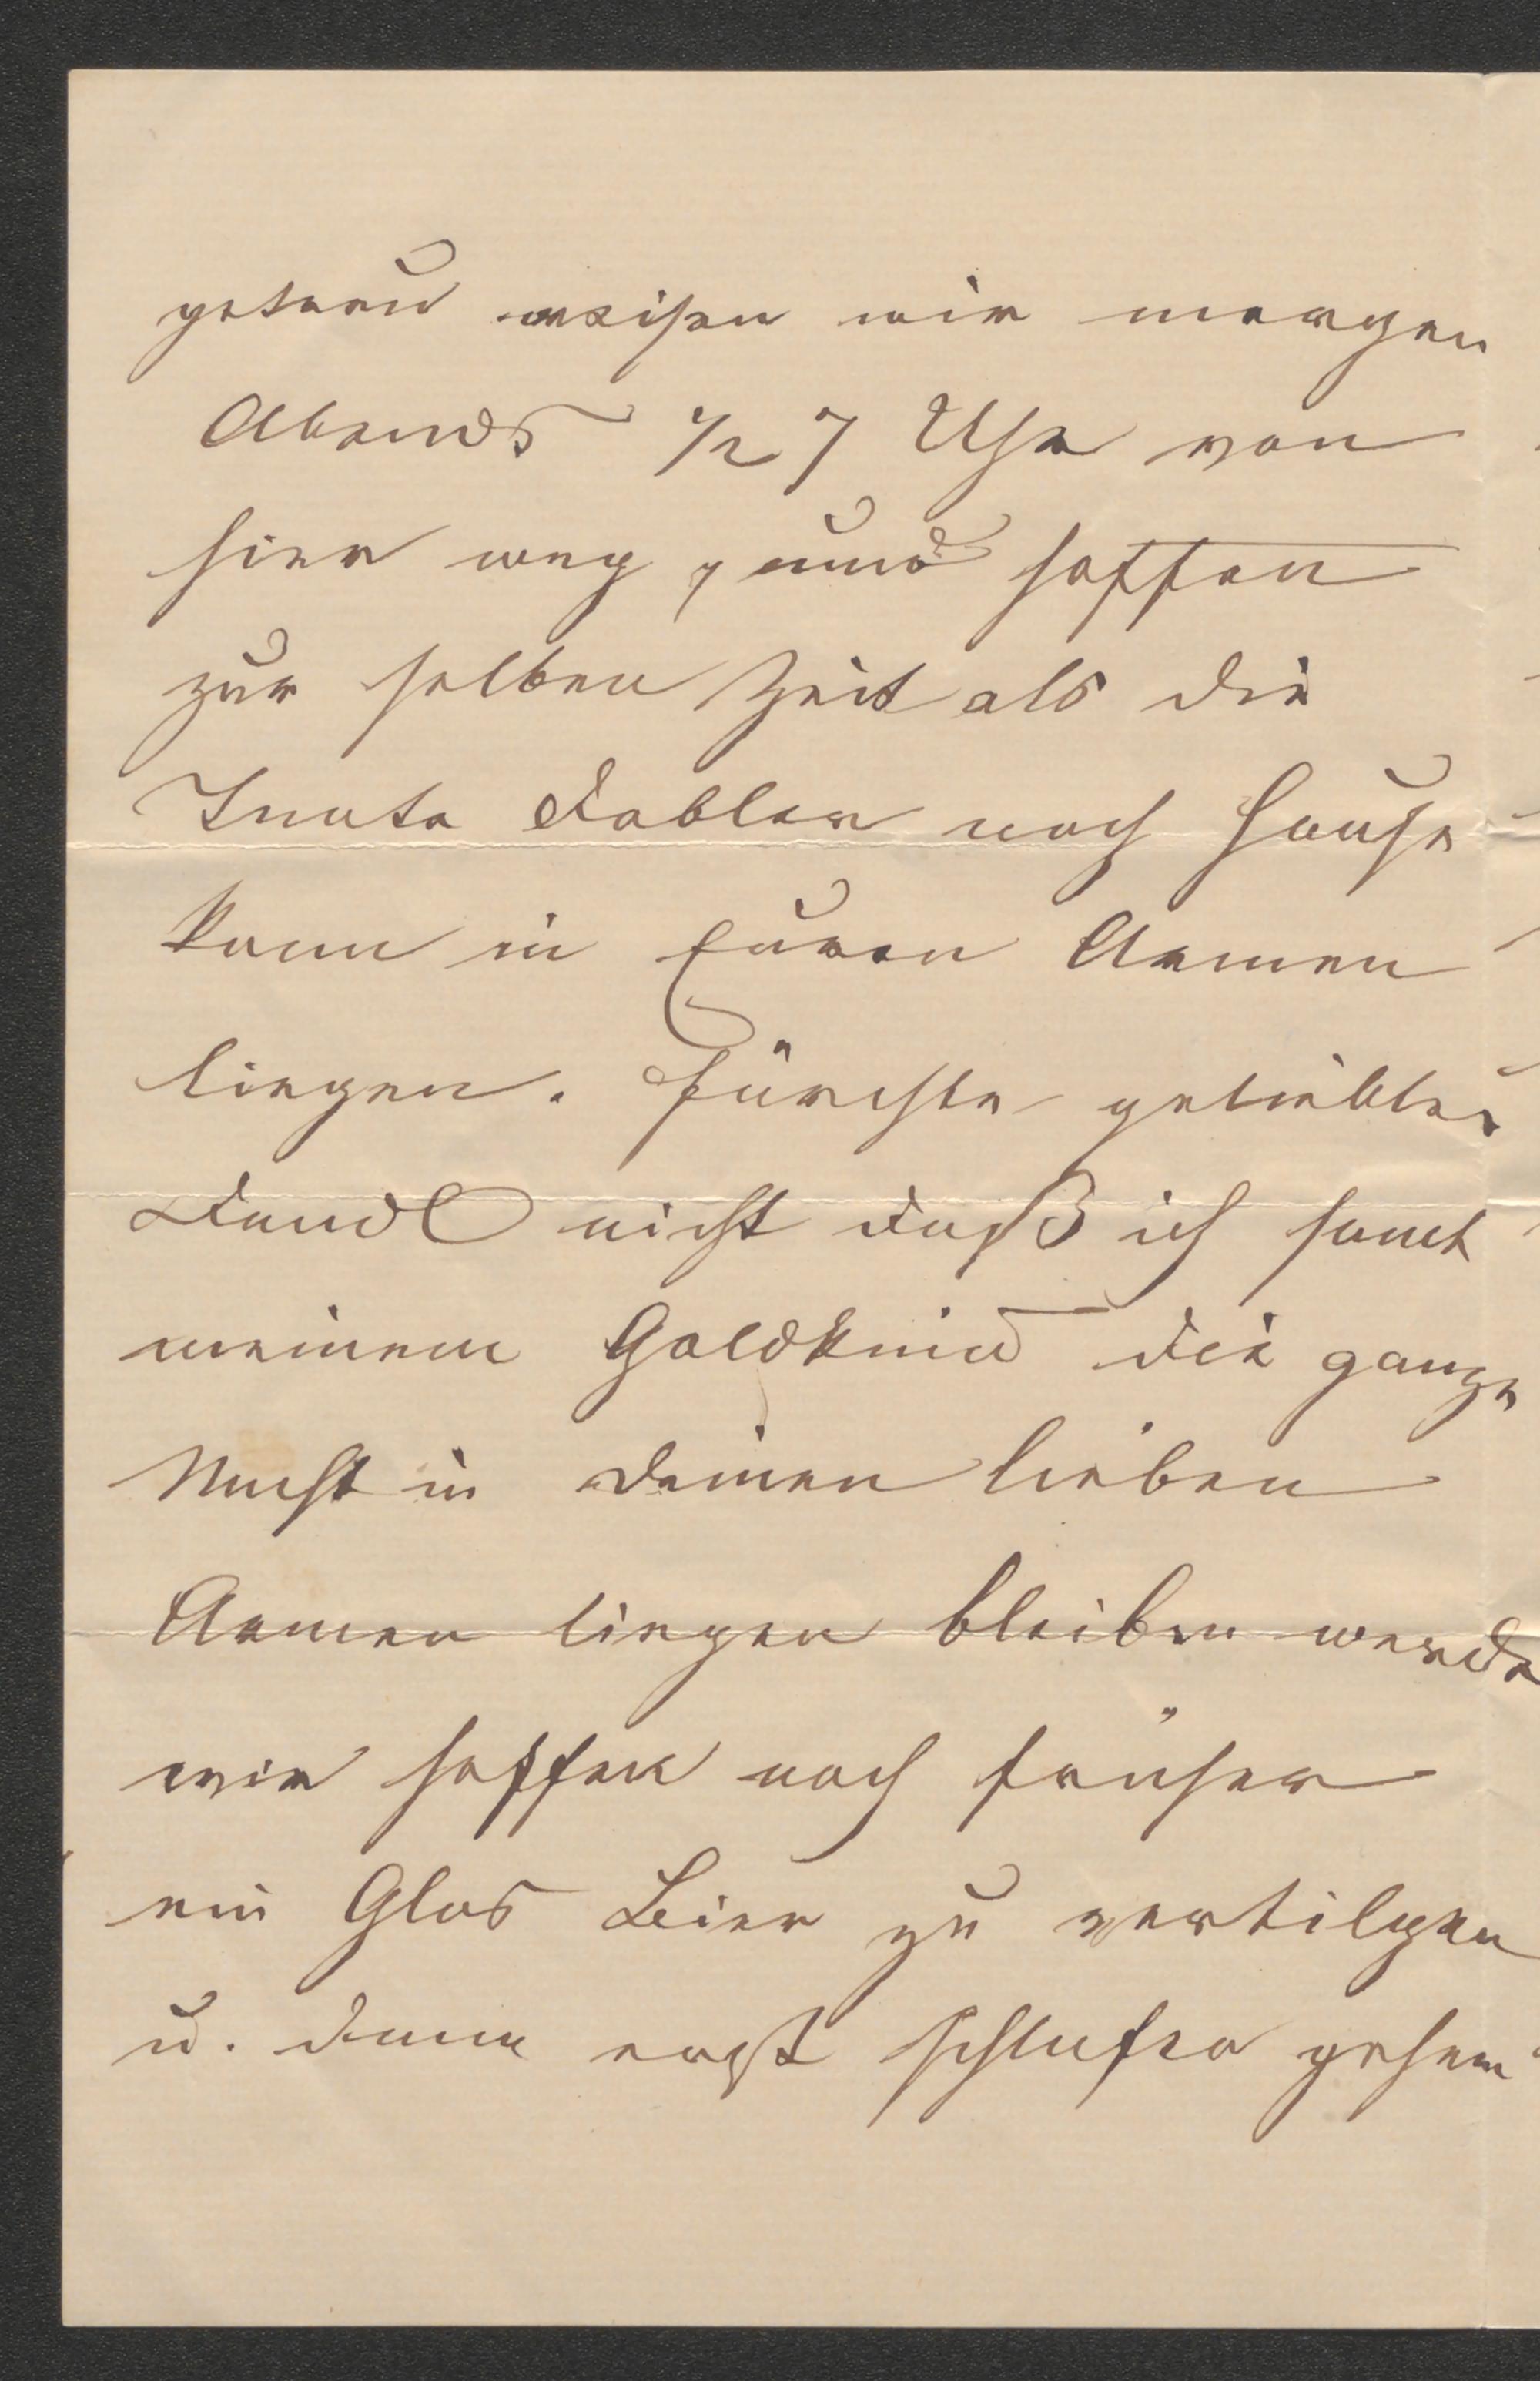 getreu reisen wir morgen
Abends 1/2 7 Uhr von
hier weg, und hoffen
zur selben Zeit als die
Tante Fabler nach Hause
kam in Euren Armen
liegen. Fürchte geliebtes
nicht daß ich samt
meinem Goldkind die ganze
Nacht in deinen lieben
Armen liegen bleiben werde
wir hoffen noch früher
ein Glas Bier zu vertilgen
u. dann erst schlafen gehen